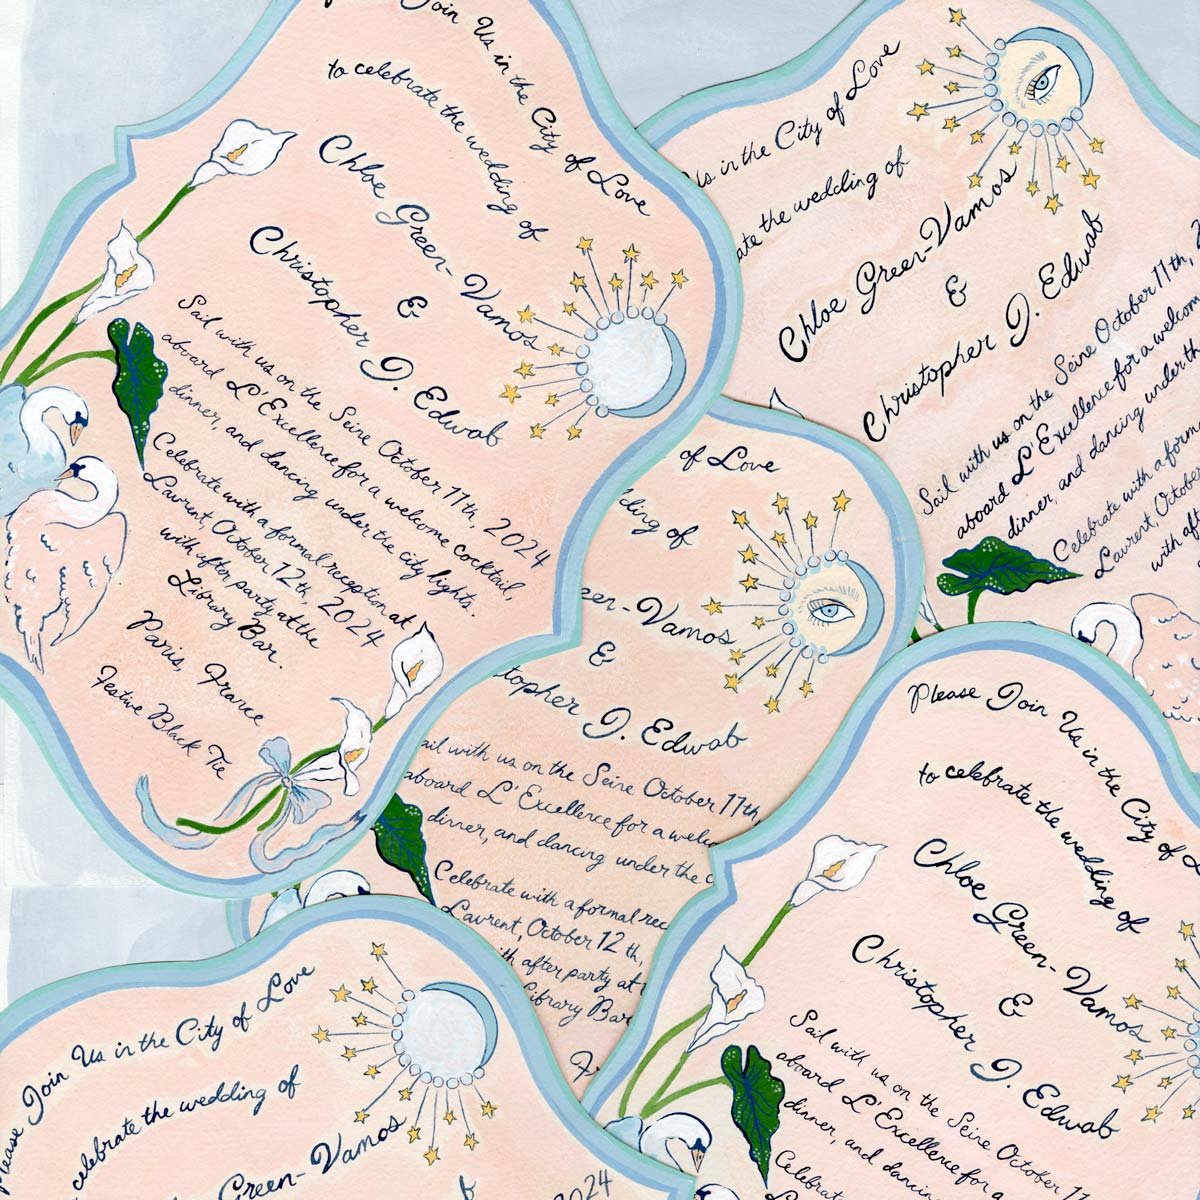 Join Us in the City of Love
to celebrate the wedding of
Chloe Green-Vamos
&
Christopher J. Edwab
Sail with us on the Seine October 11th, 2024
aboard L'Excellence for a welcome cocktail,
dinner, and dancing under the city lights.
Celebrate with a formal reception at
Laurent, October 12th, 2024
with after party at the
Library Bar.
Paris, France
Festive Black Tie
Us in the City of Love
ate the wedding of
Chloe Green-Vamos
&
Christopher J. Edwab
Sail with us on the Seine October 11th, 2
aboard L'Excellence for a welcom
dinner, and dancing under th
Celebrate with a form
Laurent, October
with aft
of Love
ding of
een-Vamos
&
topher J. Edwab
ail with us on the Seine October 11th,
aboard L'Excellence for a welc
dinner, and dancing under the c
Celebrate with a formal rec
Laurent, October 12th,
th after party at
Library Bar
Please Join Us in the City of L
to celebrate the wedding of
Chloe Green-Vamos
&
Christopher J. Edwab
Sail with us on the Seine October 11
aboard L'Excellence for a
dinner, and dancin
Celebrat
Please Join Us in the City of Love
celebrate the wedding of
Green-Vamos
2024